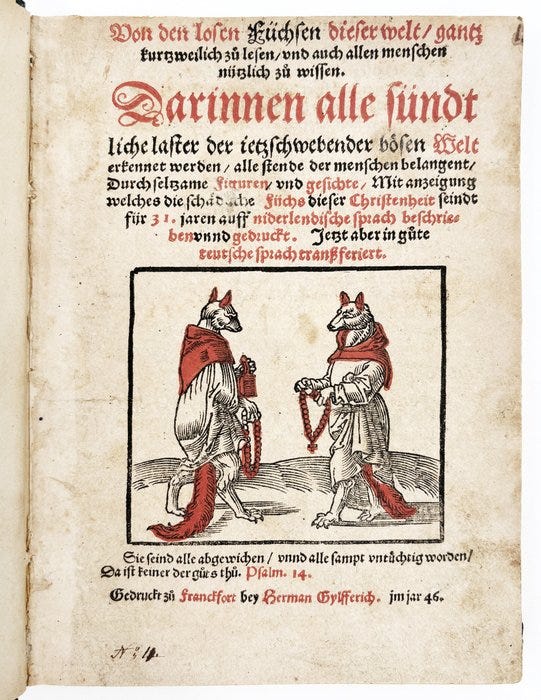 Von den losen Füchsen dieser welt / gantz
kurtzweilich zů lesen / vnd auch allen menschen
nützlich zů wissen.
Darinnen alle sündt
liche laster der ietzschwebender bösen Welt
erkennet werden / alle stende der menschen belangent /
Durch seltzame Figuren / vnd gesichte / Mit anzeigung
welches die schädliche Füchs dieser Christenheit seindt
für 31. jaren auff niderlendische sprach beschrie-
ben vnnd gedruckt. Jetzt aber in gůte
teutsche sprach transferiert.
Sie seind alle abgewichen / vnnd alle sampt vntüchtig worden /
Da ist keiner der gůts thů. Psalm. 14.
Gedruckt zů Franckfort bey Herman Gylfferich. jm jar 46.